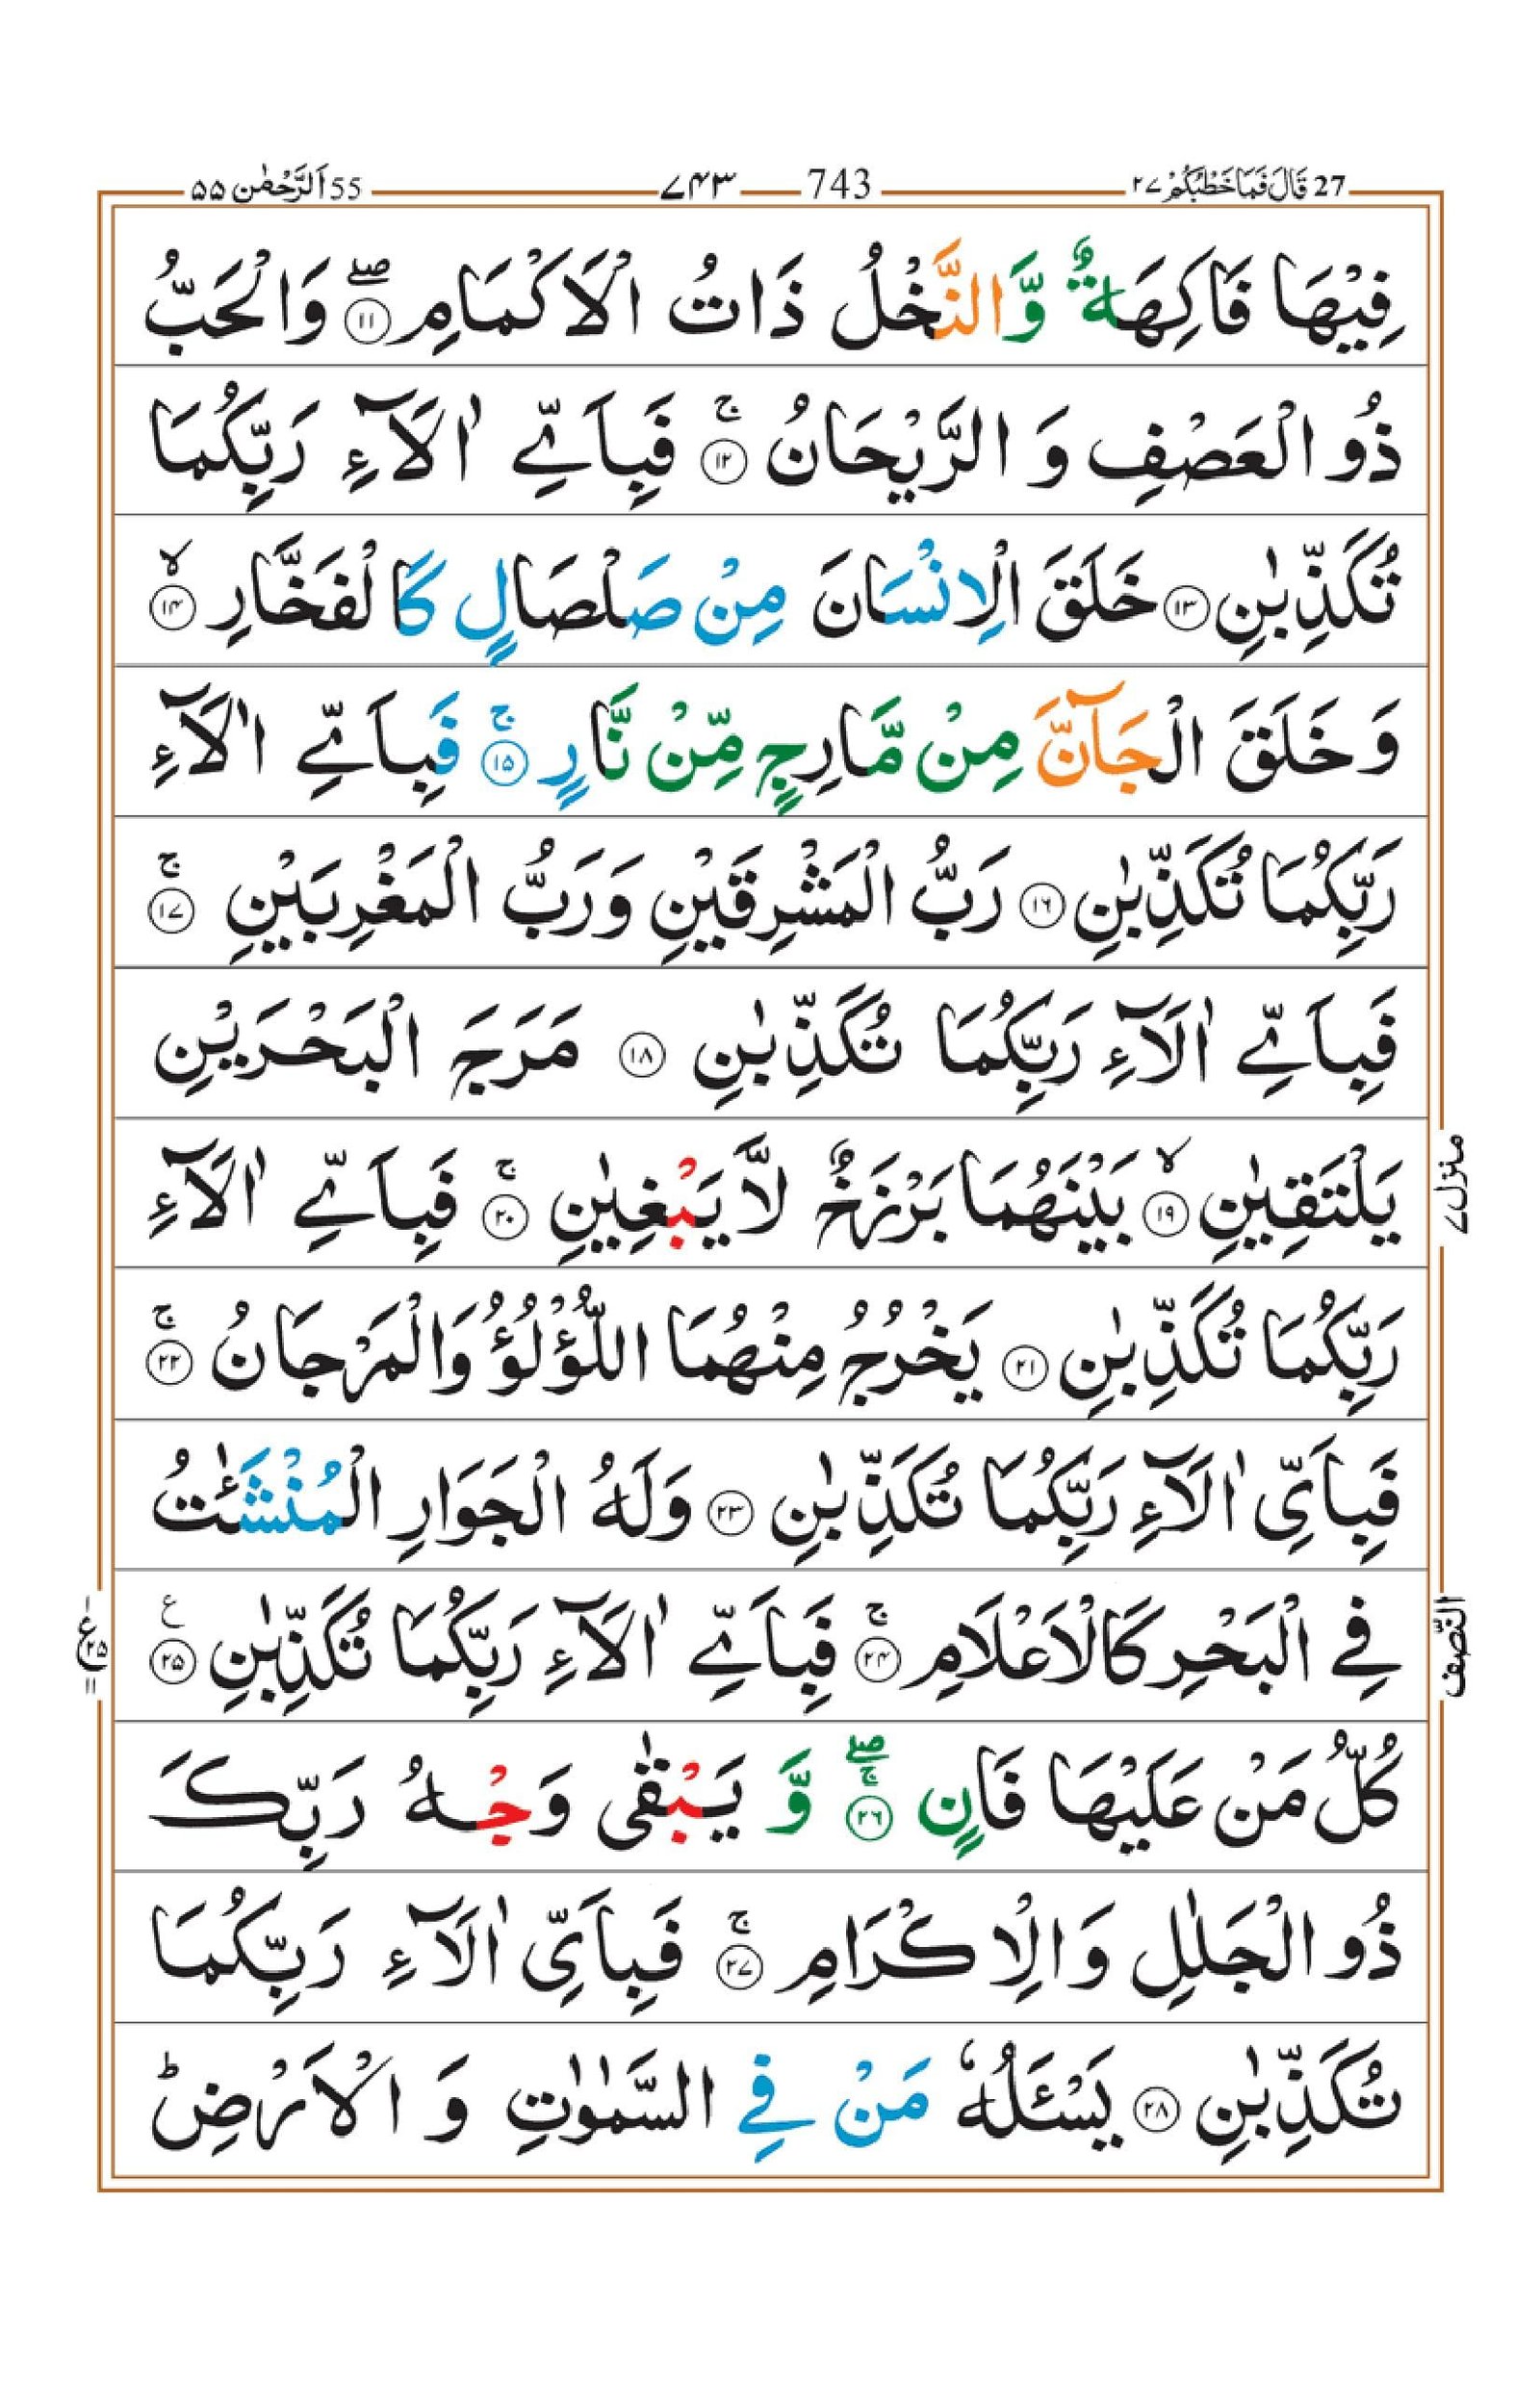 27 قَالَ فَمَا خَطْبُكُمْ ۲۷ 743 ۷۴۳ 55 اَلرَّحْمٰن ۵۵
فِيْهَا فَاكِهَةٌ وَّالنَّخْلُ ذَاتُ الْاَكْمَامِ ۖ۝۱۱ وَالْحَبُّ
ذُو الْعَصْفِ وَ الرَّيْحَانُ ۚ۝۱۲ فَبِاَيِّ اٰلَآءِ رَبِّكُمَا
تُكَذِّبٰنِ ۝۱۳ خَلَقَ الْاِنْسَانَ مِنْ صَلْصَالٍ كَالْفَخَّارِ ۙ۝۱۴
وَ خَلَقَ الْجَآنَّ مِنْ مَّارِجٍ مِّنْ نَّارٍ ۚ۝۱۵ فَبِاَيِّ اٰلَآءِ
رَبِّكُمَا تُكَذِّبٰنِ ۝۱۶ رَبُّ الْمَشْرِقَيْنِ وَ رَبُّ الْمَغْرِبَيْنِ ۚ۝۱۷
فَبِاَيِّ اٰلَآءِ رَبِّكُمَا تُكَذِّبٰنِ ۝۱۸ مَرَجَ الْبَحْرَيْنِ
يَلْتَقِيٰنِ ۙ۝۱۹ بَيْنَهُمَا بَرْزَخٌ لَّا يَبْغِيٰنِ ۚ۝۲۰ فَبِاَيِّ اٰلَآءِ
رَبِّكُمَا تُكَذِّبٰنِ ۝۲۱ يَخْرُجُ مِنْهُمَا اللُّؤْلُؤُ وَالْمَرْجَانُ ۚ۝۲۲
فَبِاَيِّ اٰلَآءِ رَبِّكُمَا تُكَذِّبٰنِ ۝۲۳ وَلَهُ الْجَوَارِ الْمُنْشَئٰتُ
فِي الْبَحْرِ كَالْاَعْلَامِ ۚ۝۲۴ فَبِاَيِّ اٰلَآءِ رَبِّكُمَا تُكَذِّبٰنِ ۝۲۵ ع
كُلُّ مَنْ عَلَيْهَا فَانٍ ۖۚ۝۲۶ وَّ يَبْقٰى وَجْهُ رَبِّكَ
ذُو الْجَلٰلِ وَالْاِكْرَامِ ۚ۝۲۷ فَبِاَيِّ اٰلَآءِ رَبِّكُمَا
تُكَذِّبٰنِ ۝۲۸ يَسْـَٔلُهٗ مَنْ فِي السَّمٰوٰتِ وَ الْاَرْضِ ؕ
منزل ۷
النّصف
ع ۲۵ ۱۱